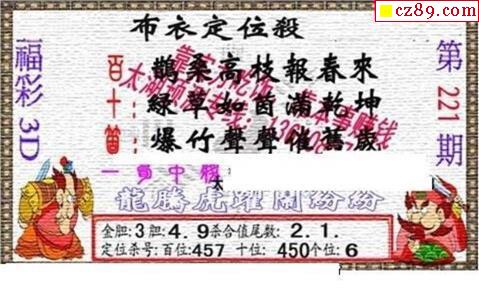 cz89.com
布衣定位殺
福彩3D
第221期
百：鵲桑高枝報春來
十：緑草如茵滿乾坤
箇：爆竹聲聲催萬歲
一負中釋：
龍騰虎躍鬧紛紛
金胆:3胆:4.9杀合值尾数:2.1.
定位杀号:百位:457 十位:450个位:6